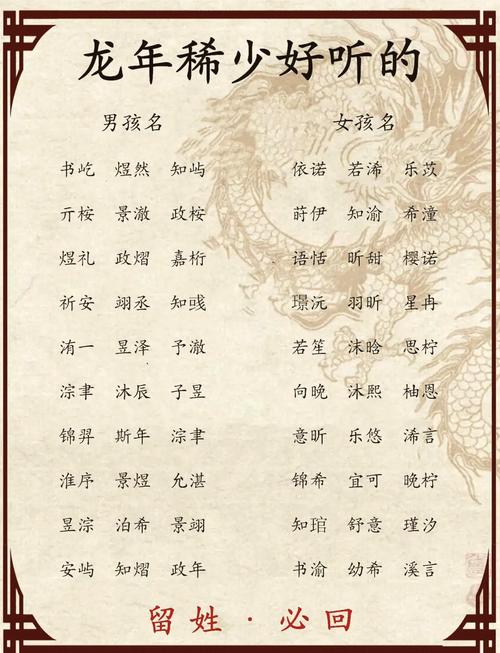 龙年稀少好听的
男孩名 女孩名
书屹 煜然 知屿 依诺 若浠 乐苡
亓桉 景澈 政桉 莳伊 知渝 希潼
煜礼 政熠 嘉桁 语恬 昕甜 樱诺
祈安 翊丞 知彧 璟沅 羽昕 星冉
洧一 昱泽 予澈 若笙 沫晗 思柠
淙聿 沐辰 子昱 向晚 沐熙 柚恩
锦羿 斯年 淙聿 意昕 乐悠 浠言
淮序 景煜 允湛 锦希 宜可 晚柠
昱淙 泊希 景翊 知琯 舒意 瑾汐
安屿 知熠 政年 书渝 幼希 溪言
留姓·必回